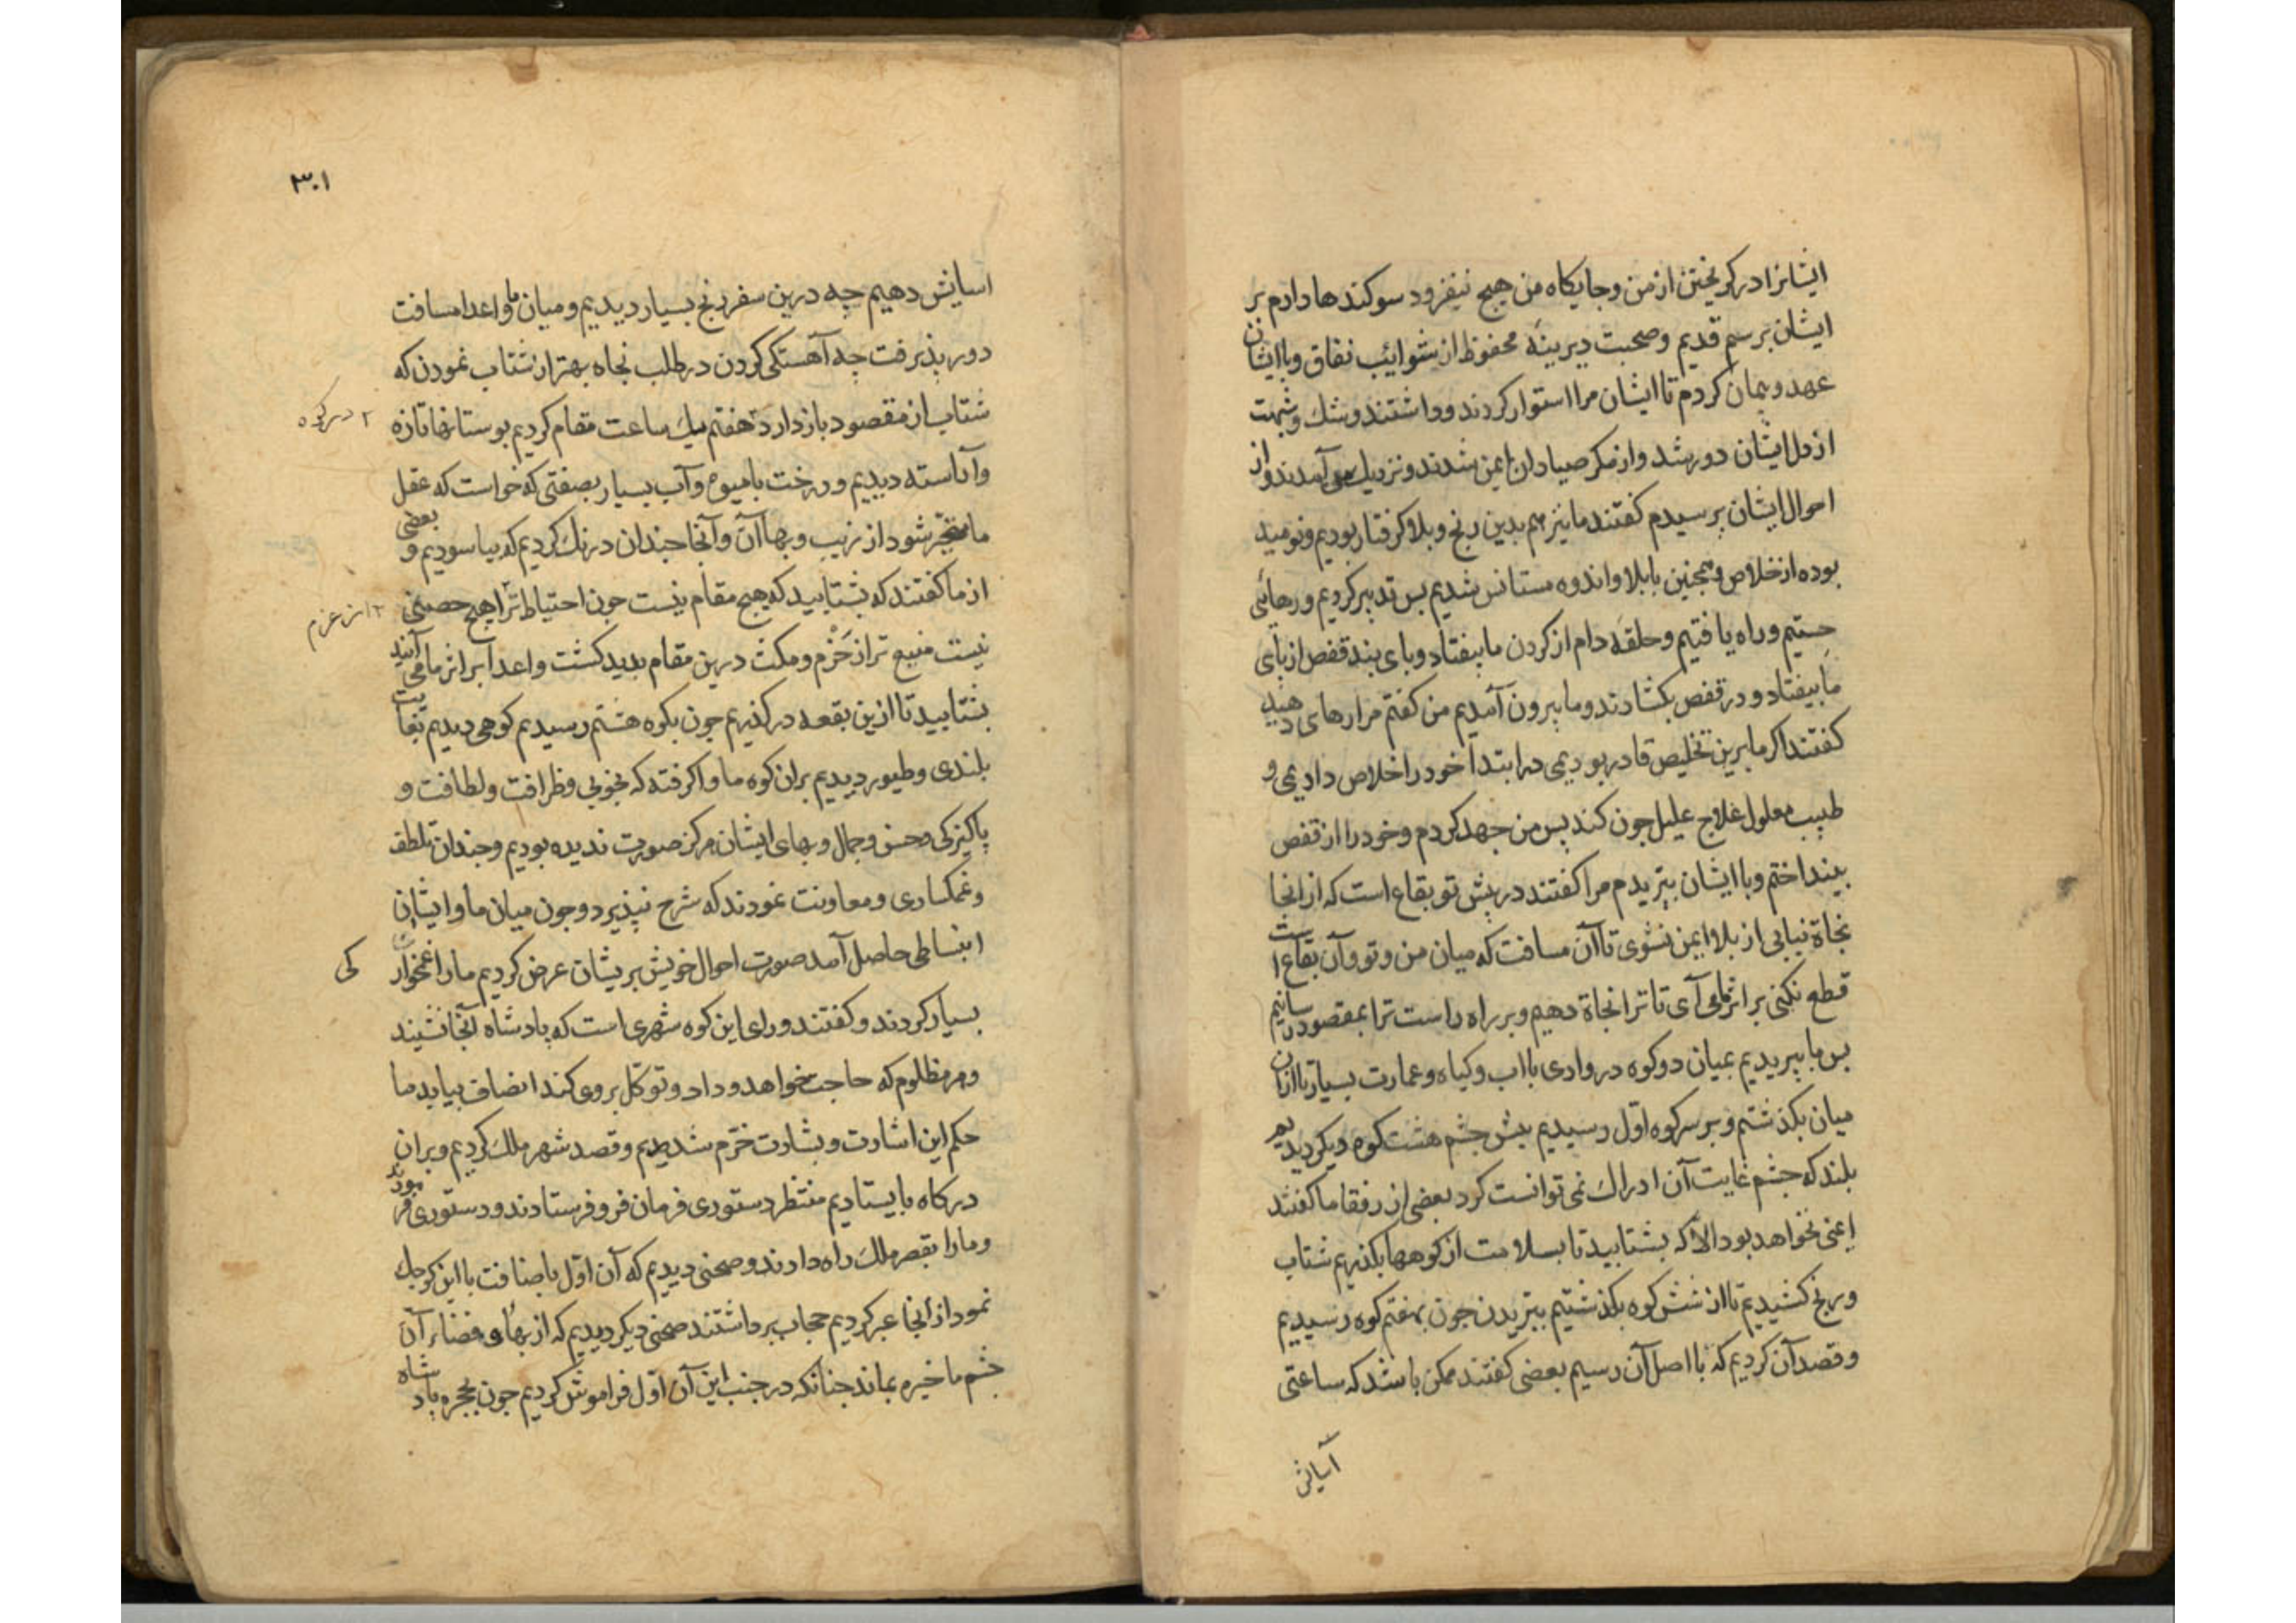 ایشانرا در کریختن از من و جایکاه من هیچ نیفزود سوکندها دادم بر
ایشان برسم قدیم و صحبت دیرینه محفوظ از شوایب نفاق و با ایشان
عهد و پیمان کردم تا ایشان مرا استوار کردند و داشتند و شک و شبهت
از دل ایشان دور شد و از مکر صیادان ایمن شدند و نزدیک من آمدند و از
احوال ایشان پرسیدم کفتند ما نیز هم بدین رنج و بلا کرفتار بودیم و نومید
بوده از خلاص و همچنین با بلا و اندوه مستانس شدیم بس تدبیر کردیم و رهائی
جستیم و راه یافتیم و حلقه دام از کردن ما بیفتاد و بای بند قفص از بای
ما بیفتاد و در قفص بکشادند و ما بیرون آمدیم من کفتم مرا رهای دهید
کفتند اکر ما برین تخلیص قادر بودیمی در ابتدا خود را خلاص دادیمی و
طبیب معلول علاج علیل جون کند بس من جهد کردم و خود را از قفص
بینداختم و با ایشان بپریدم مرا کفتند در پیش تو بقاع است که از انجا
نجاة نیابی از بلا ایمن نشوی تا آن مسافت که میان من و تو و آن بقاع است
قطع نکنی بر اثر ما می آی تا ترا نجاة دهیم و بر راه راست ترا بمقصود رسانیم
بس ما بپریدیم بمیان دو کوه در وادی با اب و کیاه و عمارت بسیار تا از ان
میان بکذشتم و بر سر کوه اول رسیدیم بیش جشم هشت کوه دیکر دیدیم
بلند که جشم غایت آن ادراک نمی توانست کرد بعضی از رفقا ما کفتند
ایمنی نخواهد بود الا که بشتابید تا بسلامت از کوهها بکذریم شتاب
و رنج کشیدیم تا از شش کوه بکذشتیم بپریدن جون بهفتم کوه رسیدیم
و قصد آن کردیم که با اصل آن رسیم بعضی کفتند ممکن باشد که ساعتی
آسایش
۳۰۱
اسایش دهیم چه درین سفر رنج بسیار دیدیم و میان ما و اعدا مسافت
دور پذیرفت چه آهستکی کردن در طلب نجاه بهتر از شتاب نمودن که
شتاب از مقصود باز دارد هفتم یک ساعت مقام کردیم بوستانها تازه
۲ در کوه
و آراسته دیدیم و درخت با میوه و آب بسیار بصفتی که خواست که عقل
ما متحیر شود از زیب و بهاء آن و آنجا جندان درنک کردیم که بیاسودیم و بعضی
از ما کفتند که بشتابید که هیچ مقام نیست جون احتیاط ترا هیچ حصنی
۲ از عزم
نیست منیع تر از حزم و مکث درین مقام بدید کشت و اعدا بر اثر ما می آیند
بشتابید تا ازین بقعه در کذریم جون بکوه هشتم رسیدیم کوهی دیدیم بغایت
بلندی و طیور دیدیم بران کوه ماوا کرفته که بخوبی و ظرافت و لطافت و
پاکیزکی و حسن و جمال و بهای ایشان هرکز صورت ندیده بودیم و جندان تلطف
و غمکساری و معاونت نمودند که شرح نپذیرد و جون میان ما و ایشان
انبساطی حاصل آمد صورت احوال خویش بریشان عرض کردیم ما را غمخوار
کی
بسیار کردند و کفتند ورای این کوه شهری است که پادشاه آنجا نشیند
و هر مظلوم که حاجت خواهد و داد و توکل بر وی کند انصاف بیابد ما
حکم این اشارت و بشارت خرم شدیم و قصد شهر ملک کردیم و بران
درکاه بایستادیم منتظر دستوری فرمان فرو فرستادند و دستوری فرمودند
و ما را بقصر ملک راه دادند و صحنی دیدیم که آن اول باضافت با این کوجک
نمود از انجا عبر کردیم حجاب برداشتند صحنی دیکر دیدیم که از بهای و فضاء آن
جشم ما خیره بماند جنانکه در جنب این آن اول فراموش کردیم جون بحجره پادشاه